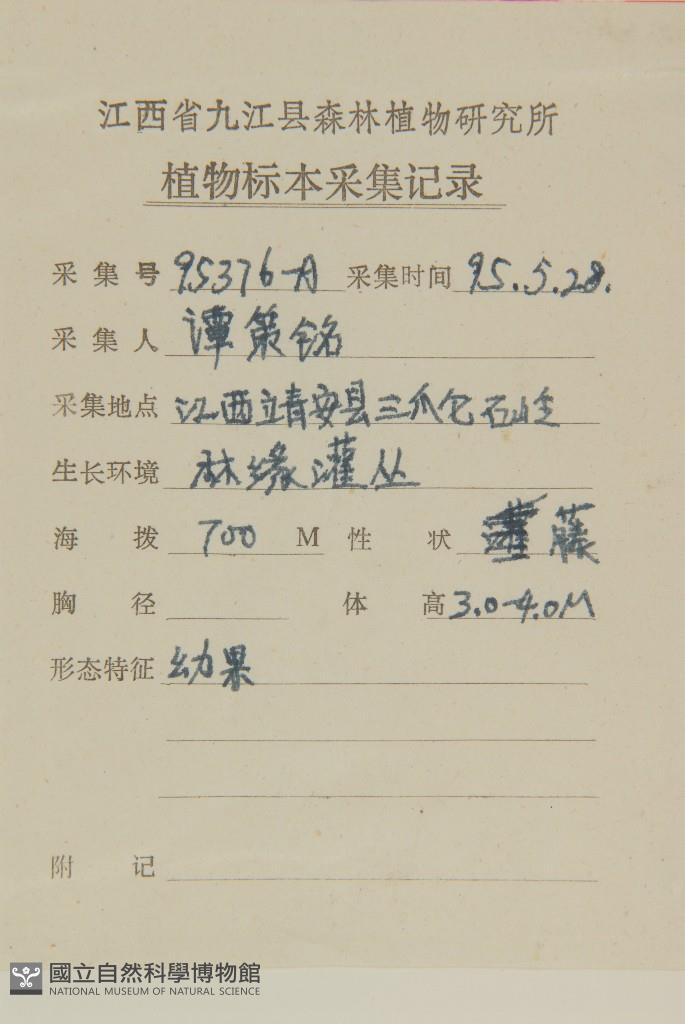 江西省九江县森林植物研究所
植物标本采集记录
采集号 95376-A 采集时间 95.5.28.
采集人 谭策铭
采集地点 江西靖安县三爪仑
生长环境 林缘灌丛
海拨 700 M 性状 藤
胸径 体高 3.0-4.0M
形态特征 幼果
附记
國立自然科學博物館
NATIONAL MUSEUM OF NATURAL SCIENCE